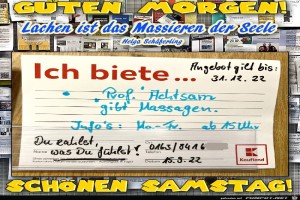 GUTEN MORGEN!
Lachen ist das Massieren der Seele
Helga Schäferling
Ich biete...
Angebot gilt bis:
31.12.22
"Prof." Achtsam
gibt Massagen.
Info's: Mo-Fr. ab 15 Uhr
Du zahlst,
was Du fühlst!
0163/0416
15.9.22
Kaufland
SCHÖNEN SAMSTAG!